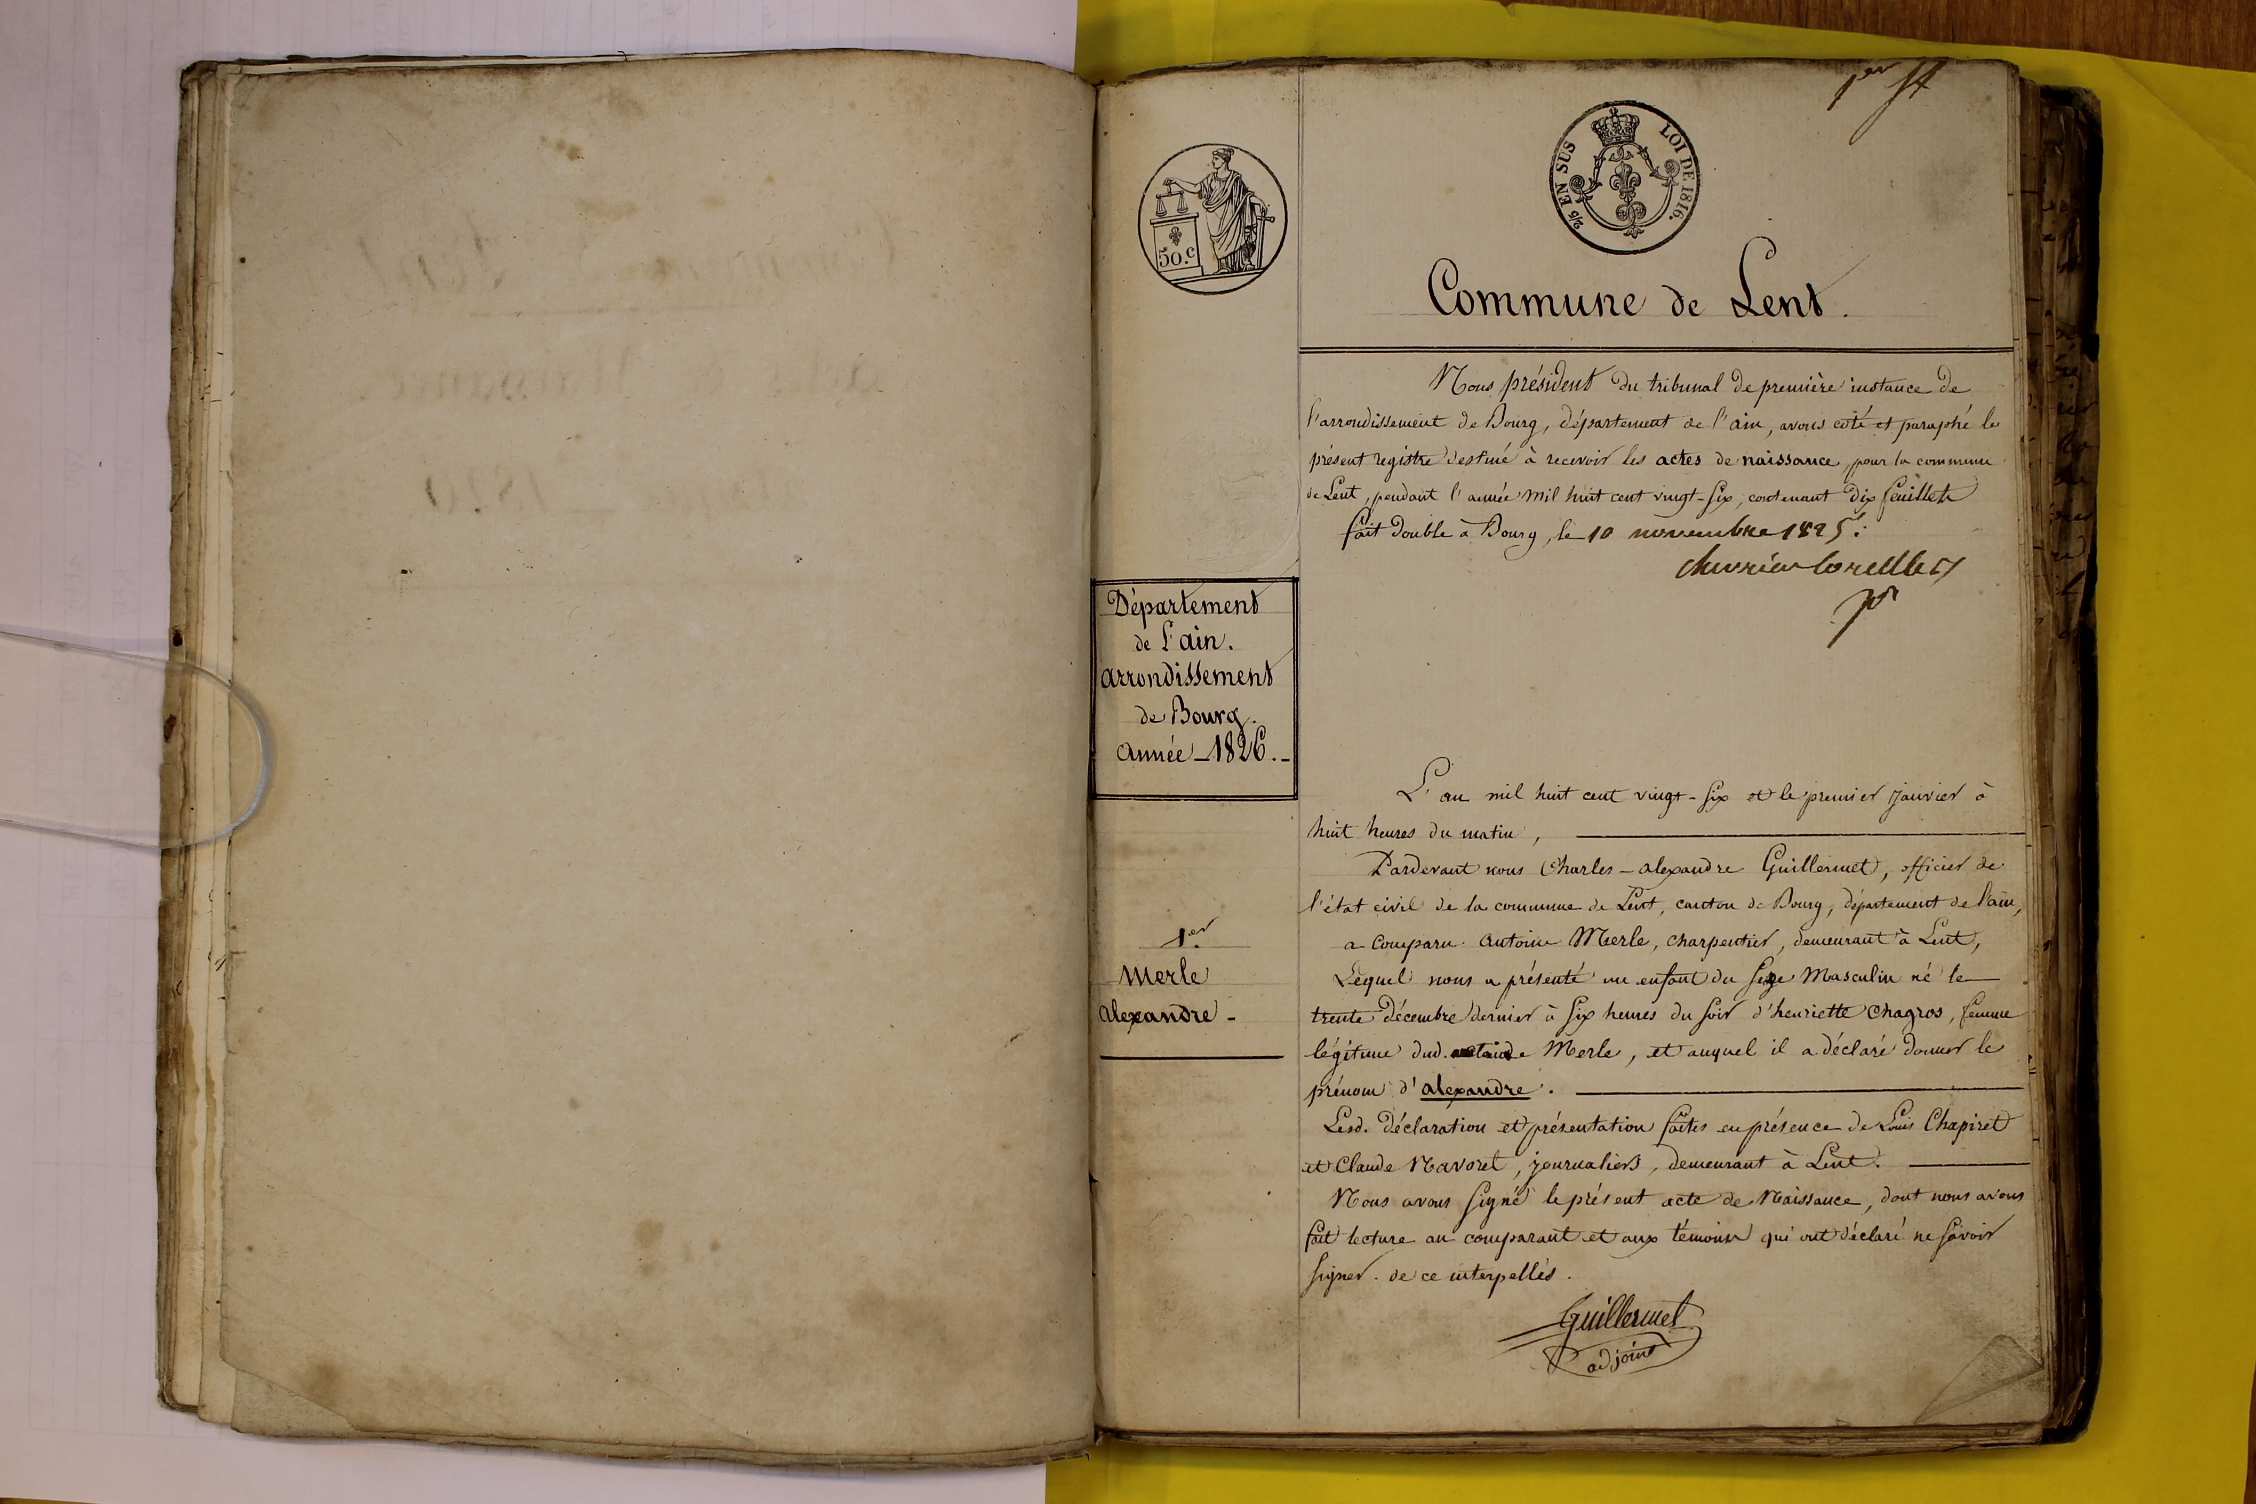 1er
2/5 EN SUS
LOI DE 1816.
50.c
Commune de Lent.
Nous président du tribunal de première instance de
l'arrondissement de Bourg, département de l'ain, avons coté et paraphé le
présent registre destiné à recevoir les actes de naissance pour la commune
de Lent, pendant l'année mil huit cent vingt-six, contenant dix feuillets
fait double à Bourg, le 10 novembre 1825.
Département
de l'ain.
arrondissement
de Bourg.
année 1826.
L'an mil huit cent vingt-six et le premier janvier à
huit heures du matin,
Pardevant nous Charles-alexandre Guillermet, officier de
l'état civil de la commune de Lent, canton de Bourg, département de l'ain,
a comparu antoine Merle, charpentier, demeurant à Lent,
Lequel nous a présenté un enfant du sexe Masculin né le
trente décembre dernier à six heures du soir d'henriette Chagros, femme
légitime dud. antoine Merle, et auquel il a déclaré donner le
prénom d'alexandre.
Lesd. déclaration et présentation faites en présence de Louis Chapiret
et Claude Navoret, journaliers, demeurant à Lent.
Nous avons signé le présent acte de Naissance, dont nous avons
fait lecture au comparant et aux témoins qui ont déclaré ne savoir
signer de ce interpellés.
1er
Merle
alexandre -
Guillermet
adjoint